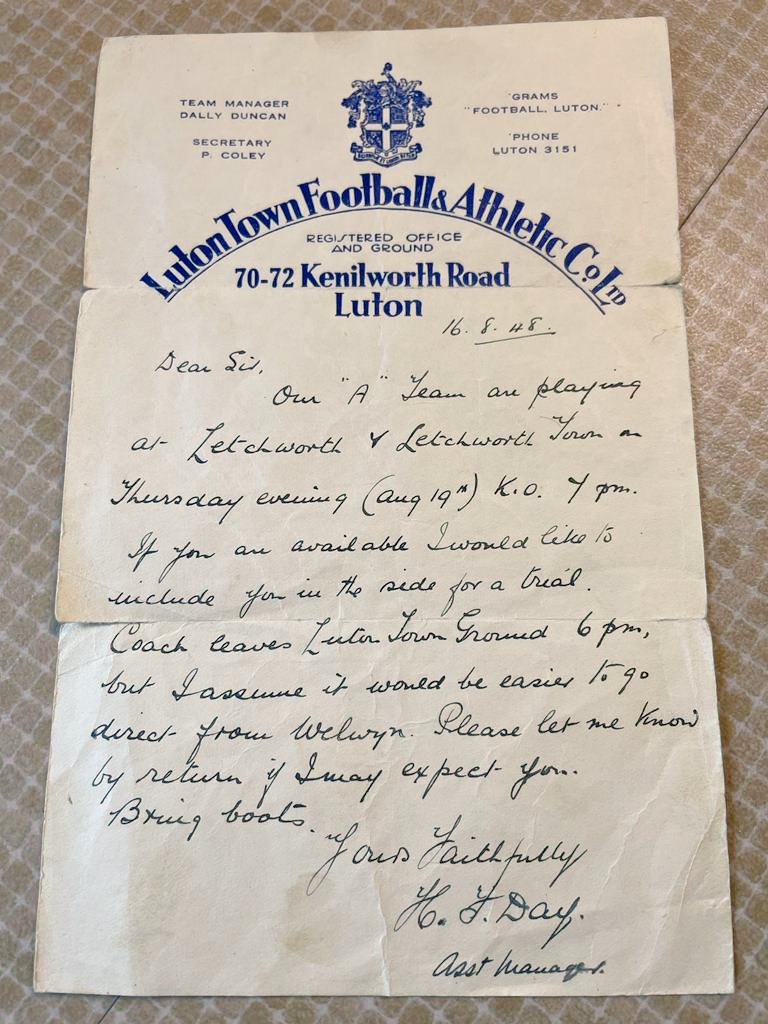 TEAM MANAGER
DALLY DUNCAN
SECRETARY
P. COLEY
'GRAMS
"FOOTBALL, LUTON."
'PHONE
LUTON 3151
Luton Town Football & Athletic Co. LTD
REGISTERED OFFICE
AND GROUND
70-72 Kenilworth Road
Luton
16. 8. 48.
Dear Sir,
Our "A" Team are playing
at Letchworth v Letchworth Town on
Thursday evening (Aug 19th) K.O. 7 pm.
If you are available I would like to
include you in the side for a trial.
Coach leaves Luton Town Ground 6 pm,
but I assume it would be easier to go
direct from Welwyn. Please let me know
by return if I may expect you.
Bring boots.
Yours Faithfully
H. F. Day.
Asst Manager.